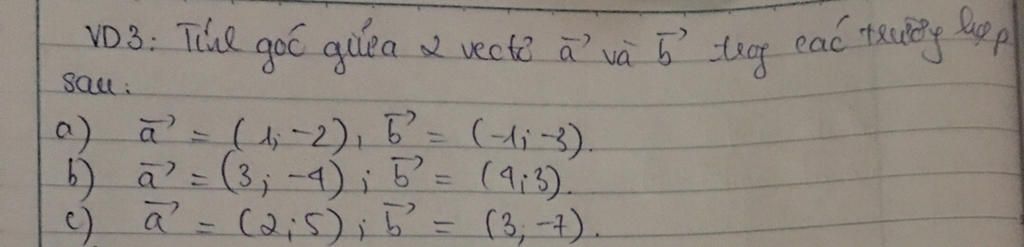 VD3: Tính góc giữa 2 vectơ a⃗ và b⃗ trog các trường hợp
sau:
a) a⃗ = (1; -2), b⃗ = (-1; -3).
b) a⃗ = (3; -4); b⃗ = (4; 3).
c) a⃗ = (2; 5); b⃗ = (3; -7).